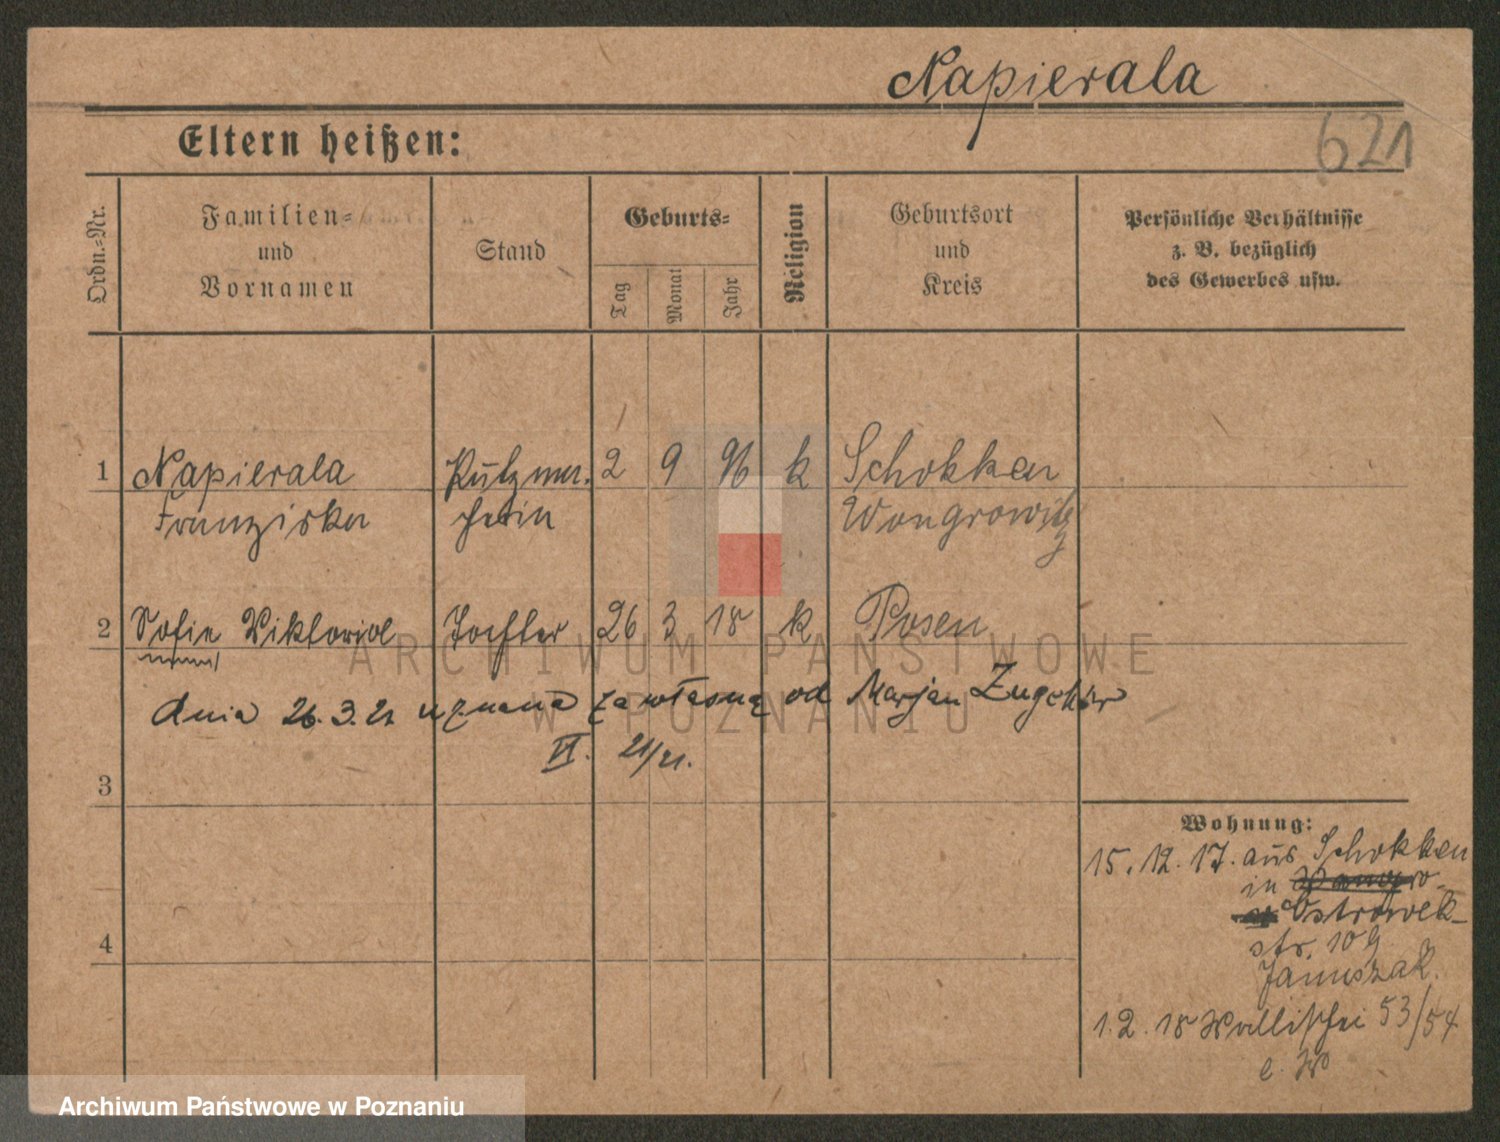 Napierala
621
Eltern heißen:
Ordn.-Nr.
Familien-
und
Vornamen
Stand
Geburts-
Tag
Monat
Jahr
Religion
Geburtsort
und
Kreis
Persönliche Verhältnisse
z. B. bezüglich
des Gewerbes usw.
1 Napierala Putzma. 2 9 96 k Schokken
Franziska cherin Wongrowitz
2 Sofie Viktoria Tochter 26 3 18 k Posen
ARCHIWUM PAŃSTWOWE
W POZNANIU
dnia 26.3.21 uznana za własną od Marjan
VI. 21/21.
3
Wohnung:
15.12.17. aus Schokken
in
Ostrowek-
str. 10 g
Januszak.
4
1.2.18 Wallischei 53/54
Archiwum Państwowe w Poznaniu